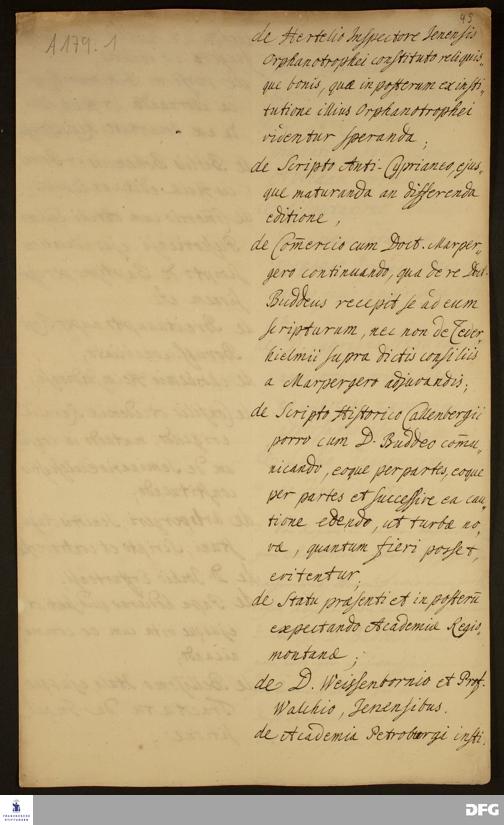 A 179.1
95
de Hertelio Inspectore Jenensis
Orphanotrophei constituto reliquis„
que bonis, quæ in posterum ex insti„
tutione illius Orphanotrophei
videntur speranda;
de Scripto Anti-Cyprianeo, ejus„
que maturanda an differenda
editione,
de Com̄ercio cum Doct. Marper„
gero continuando, qua de re Doct.
Buddeus recepit se ad eum
scripturum, nec non de Ceder„
hielmii supra dictis consiliis
a Marpergero adjuvandis;
de Scripto Historico Callenbergii
porro cum D. Buddeo com̄u„
nicando, eoque per partes, eoque
per partes et successive ea cau„
tione edendo, ut turbæ no„
væ, quantum fieri posset,
evitentur.
de Statu præsenti et in posterū
expectando Academiæ Regio„
montanæ;
de D. Weissenbornio et Prof.
Walchio, Jenensibus.
de Academia Petroburgi insti„
FRANCKESCHE
STIFTUNGEN
DFG